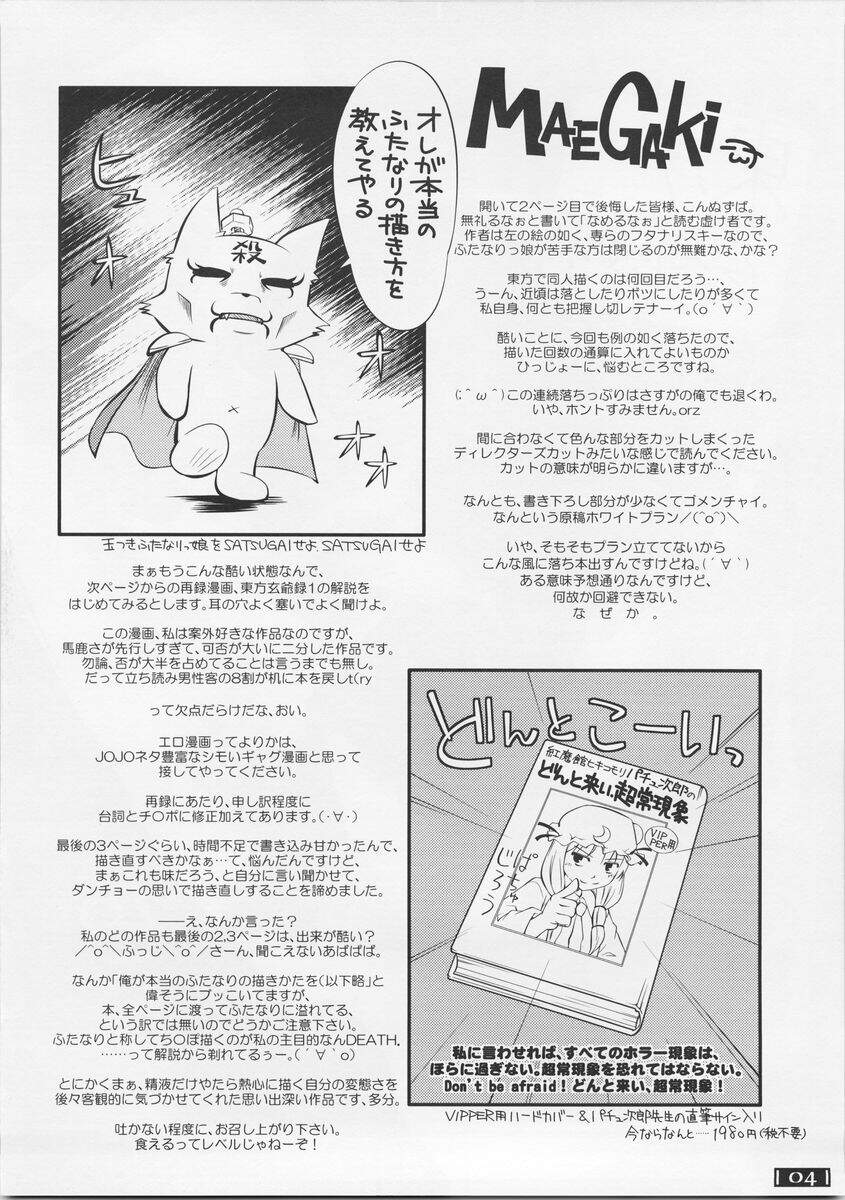 MAEGAKi
開いて2ページ目で後悔した皆様、こんぬずば。
無礼るなぉと書いて「なめるなぉ」と読む虚け者です。
作者は左の絵の如く、専らのフタナリスキーなので、
ふたなりっ娘が苦手な方は閉じるのが無難かな、かな?
東方で同人描くのは何回目だろう…、
うーん、近頃は落としたりボツにしたりが多くて
私自身、何とも把握し切レテナーイ。(o´∀`)
酷いことに、今回も例の如く落ちたので、
描いた回数の通算に入れてよいものか
ひっじょーに、悩むところですね。
(;^ω^)この連続落ちっぷりはさすがの俺でも退くわ。
いや、ホントすみません。orz
間に合わなくて色んな部分をカットしまくった
ディレクターズカットみたいな感じで読んでください。
カットの意味が明らかに違いますが…。
なんとも、書き下ろし部分が少なくてゴメンチャイ。
なんという原稿ホワイトプラン/(^o^)\
いや、そもそもプラン立ててないから
こんな風に落ち本出すんですけどね。(´∀`)
ある意味予想通りなんですけど、
何故か回避できない。
なぜか。
オレが本当の
ふたなりの描き方を
教えてやる
ヒュ
オ
オ
オ
殺
玉つきふたなりっ娘をSATSUGAIせよ.SATSUGAIせよ
まぁもうこんな酷い状態なんで、
次ページからの再録漫画、東方玄爺録1の解説を
はじめてみるとします。耳の穴よく塞いでよく聞けよ。
この漫画、私は案外好きな作品なのですが、
馬鹿さが先行しすぎて、可否が大いに二分した作品です。
勿論、否が大半を占めてることは言うまでも無し。
だって立ち読み男性客の8割が机に本を戻しt(ry
って欠点だらけだな、おい。
エロ漫画ってよりかは、
JOJOネタ豊富なシモいギャグ漫画と思って
接してやってください。
再録にあたり、申し訳程度に
台詞とチ○ポに修正加えてあります。(・∀・)
最後の3ページぐらい、時間不足で書き込み甘かったんで、
描き直すべきかなぁ…て、悩んだんですけど、
まぁこれも味だろう、と自分に言い聞かせて、
ダンチョーの思いで描き直しすることを諦めました。
――え、なんか言った?
私のどの作品も最後の2,3ページは、出来が酷い?
/^o^\ふっじ\^o^/さーん、聞こえないあばばば。
なんか「俺が本当のふたなりの描きかたを(以下略)」と
偉そうにブッこいてますが、
本、全ページに渡ってふたなりに溢れてる、
という訳では無いのでどうかご注意下さい。
ふたなりと称してち○ぽ描くのが私の主目的なんDEATH.
……って解説から剃れてるぅー。(´∀`o)
とにかくまぁ、精液だけやたら熱心に描く自分の変態さを
後々客観的に気づかせてくれた思い出深い作品です、多分。
吐かない程度に、お召し上がり下さい。
食えるってレベルじゃねーぞ!
どんとこーいっ
紅魔館ヒキコモリパチュ次郎の
どんと来い、超常現象
VIP
PER用
ぱちゅ
じろう
私に言わせれば、すべてのホラー現象は、
ほらに過ぎない。超常現象を恐れてはならない。
Don't be afraid! どんと来い、超常現象!
VIPPER用ハードカバー&パチュ次郎先生の直筆サイン入り
今ならなんと……1980円(税不要)
04